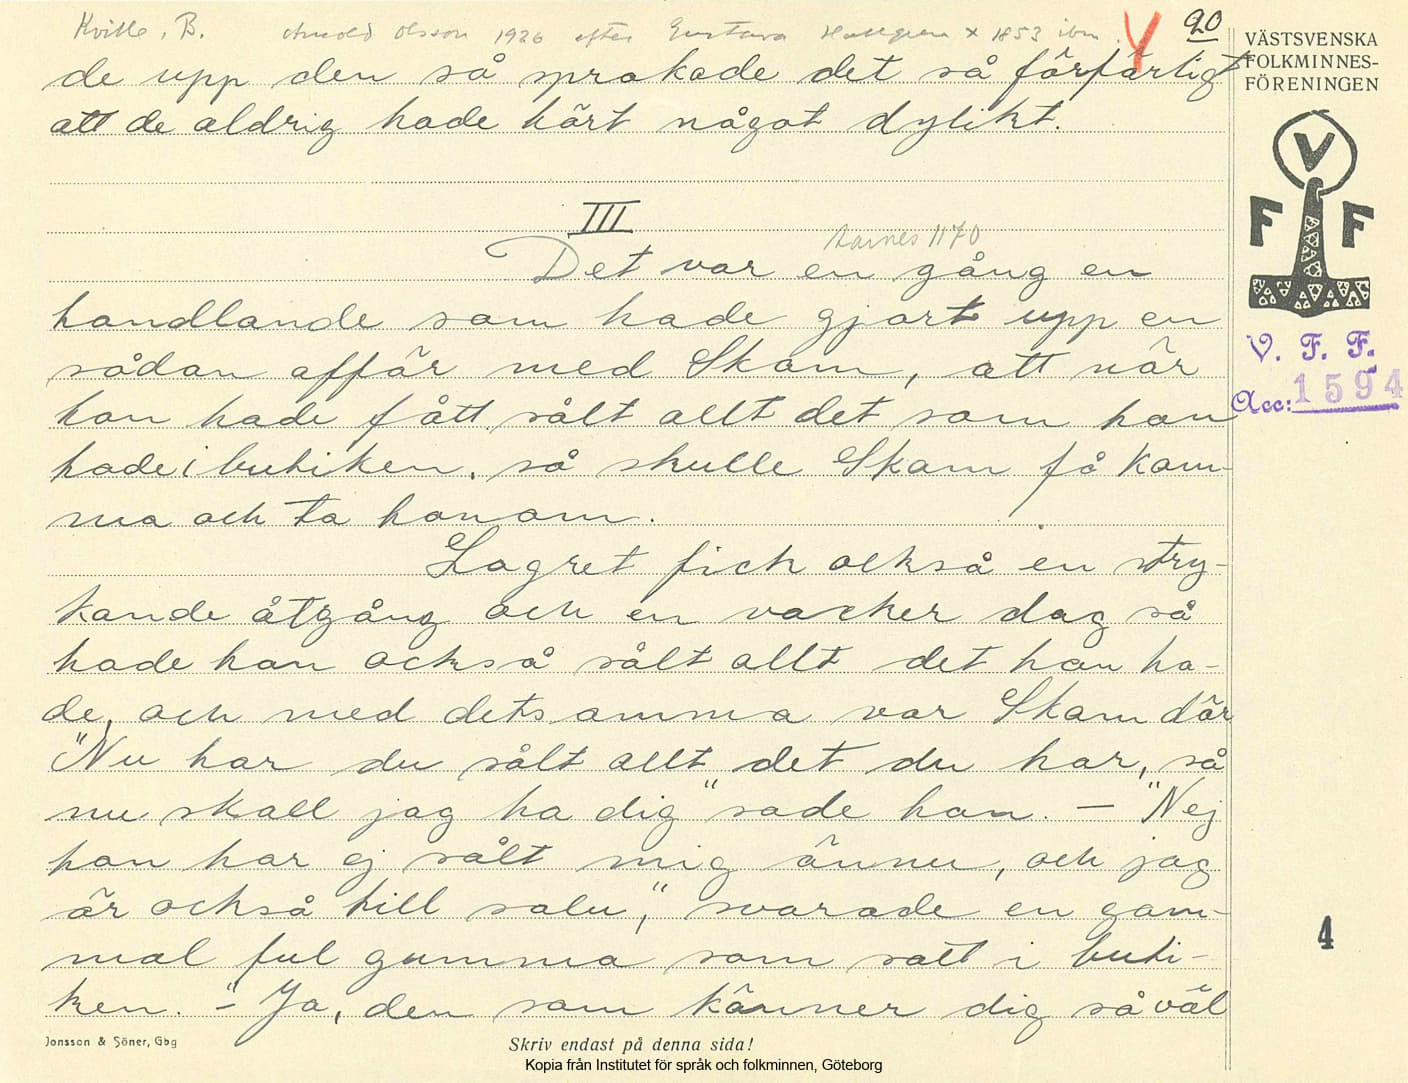 Kville, B. Arnold Olsson 1926 efter Gustava Hallgren x 1853 ibm. 20
VÄSTSVENSKA
FOLKMINNES-
FÖRENINGEN
de upp den så sprakade det så förfärligt
att de aldrig hade hört något dylikt.
V
F F
III
Aarnes 1170
Det var en gång en
handlande som hade gjort upp en
sådan affär med Skam, att när
han hade fått sålt allt det som han
hade i butiken, så skulle Skam få kom-
ma och ta honom.
V. F. F.
Acc: 1594
Lagret fick också en stry-
kande åtgång och en vacker dag så
hade han också sålt allt det han ha-
de, och med detsamma var Skam där
"Nu har du sålt allt det du har, så
nu skall jag ha dig" sade han. — "Nej
han har ej sålt mig ännu, och jag
är också till salu," svarade en gam-
mal ful gumma som satt i buti-
ken. - "Ja, den som känner dig så väl
4
Jonsson & Söner, Gbg
Skriv endast på denna sida!
Kopia från Institutet för språk och folkminnen, Göteborg